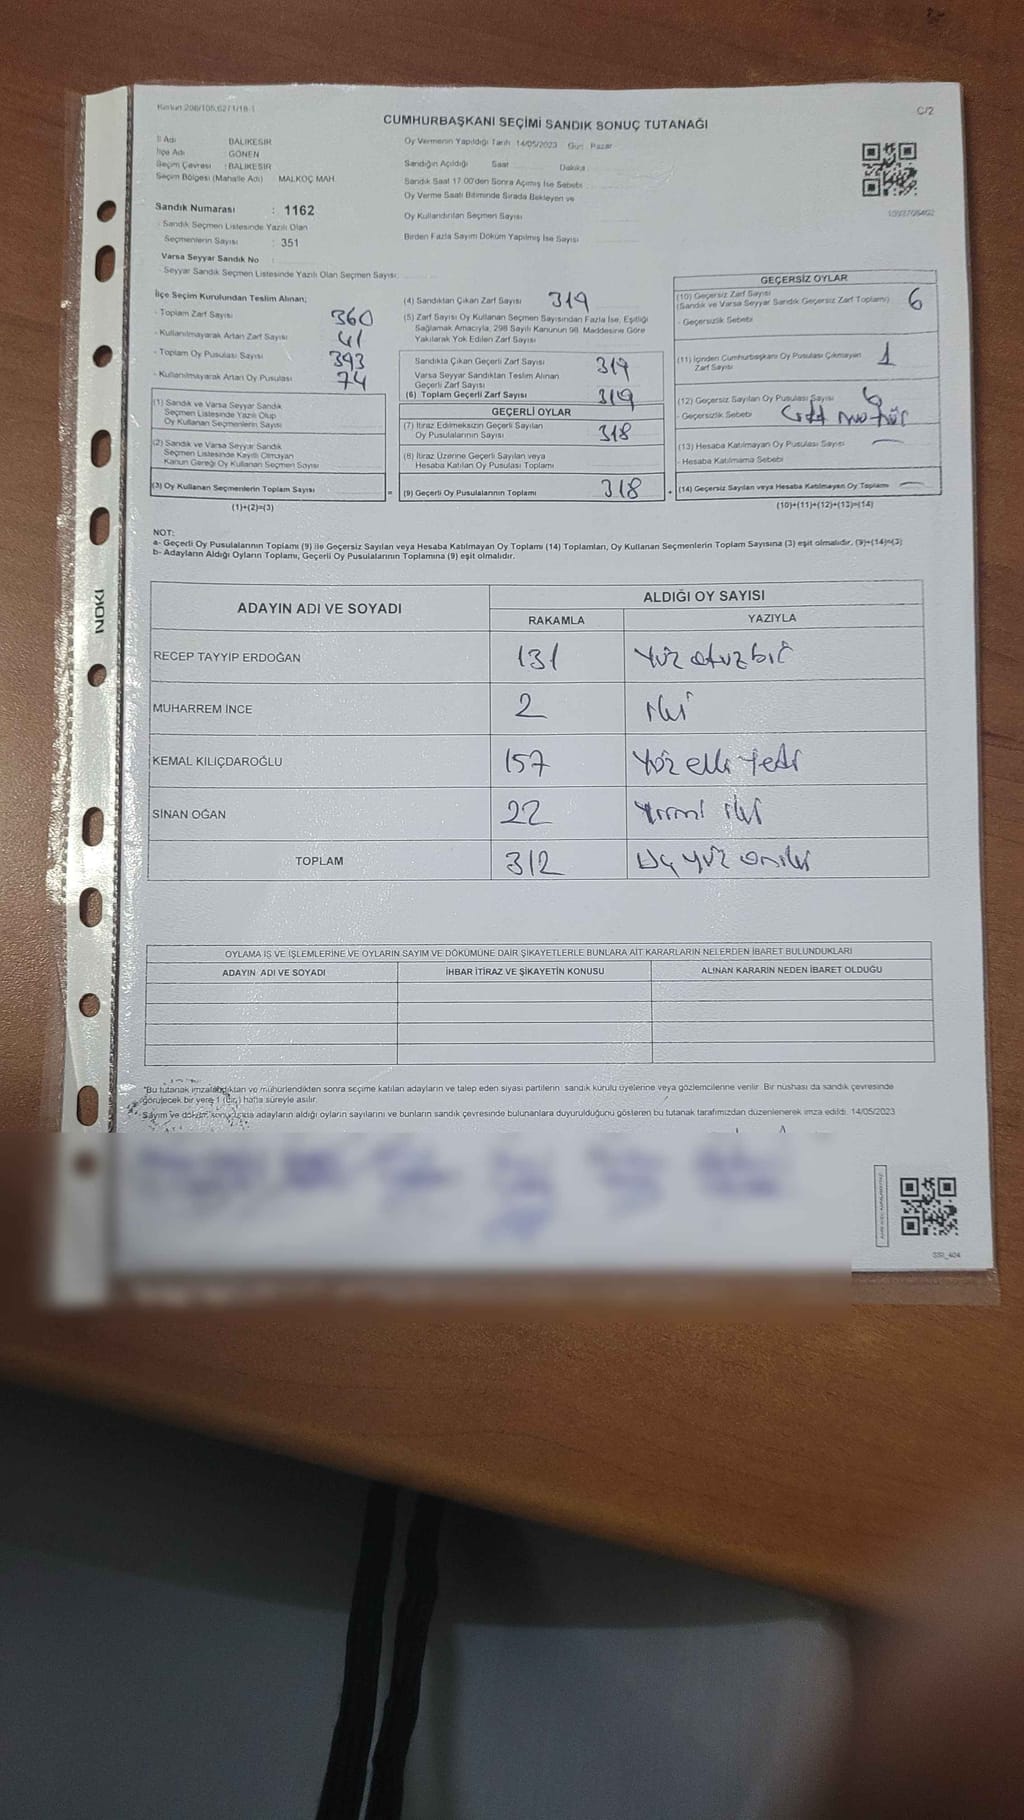 C/2
CUMHURBAŞKANI SEÇİMİ SANDIK SONUÇ TUTANAĞI
İl Adı BALIKESİR
İlçe Adı : GÖNEN
Seçim Çevresi : BALIKESİR
Seçim Bölgesi (Mahalle Adı) : MALKOÇ MAH.
Sandık Numarası : 1162
Sandık Seçmen Listesinde Yazılı Olan
Seçmenlerin Sayısı : 351
Varsa Seyyar Sandık No :
- Seyyar Sandık Seçmen Listesinde Yazılı Olan Seçmen Sayısı:
Oy Vermenin Yapıldığı Tarih 14/05/2023 Gün: Pazar
Sandığın Açıldığı Saat Dakika
Sandık Saat 17.00'den Sonra Açımış İse Sebebi
Oy Verme Saati Bitiminde Sırada Bekleyen ve
Oy Kullandırılan Seçmen Sayısı
Birden Fazla Sayım Döküm Yapılmış İse Sayısı
İlçe Seçim Kurulundan Teslim Alınan;
- Toplam Zarf Sayısı 360
- Kullanılmayarak Artan Zarf Sayısı 41
- Toplam Oy Pusulası Sayısı 393
- Kullanılmayarak Artan Oy Pusulası 74
(1) Sandık ve Varsa Seyyar Sandık
Seçmen Listesinde Yazılı Olup
Oy Kullanan Seçmenlerin Sayısı
(2) Sandık ve Varsa Seyyar Sandık
Seçmen Listesinde Kayıtlı Olmayan
Kanun Gereği Oy Kullanan Seçmen Sayısı
(3) Oy Kullanan Seçmenlerin Toplam Sayısı
(1)+(2)=(3)
(4) Sandıktan Çıkan Zarf Sayısı 319
(5) Zarf Sayısı Oy Kullanan Seçmen Sayısından Fazla İse, Eşitliği
Sağlamak Amacıyla, 298 Sayılı Kanunun 98. Maddesine Göre
Yakılarak Yok Edilen Zarf Sayısı
Sandıkta Çıkan Geçerli Zarf Sayısı 319
Varsa Seyyar Sandıktan Teslim Alınan
Geçerli Zarf Sayısı
(6) Toplam Geçerli Zarf Sayısı 319
GEÇERLİ OYLAR
(7) İtiraz Edilmeksizin Geçerli Sayılan
Oy Pusulalarının Sayısı 318
(8) İtiraz Üzerine Geçerli Sayılan veya
Hesaba Katılan Oy Pusulası Toplamı
= (9) Geçerli Oy Pusulalarının Toplamı 318 +
GEÇERSİZ OYLAR
(10) Geçersiz Zarf Sayısı
(Sandık ve Varsa Seyyar Sandık Geçersiz Zarf Toplamı) 6
- Geçersizlik Sebebi
(11) İçinden Cumhurbaşkanı Oy Pusulası Çıkmayan
Zarf Sayısı 1
(12) Geçersiz Sayılan Oy Pusulası Sayısı 6
- Geçersizlik Sebebi
(13) Hesaba Katılmayan Oy Pusulası Sayısı —
- Hesaba Katılmama Sebebi
(14) Geçersiz Sayılan veya Hesaba Katılmayan Oy Toplamı —
(10)+(11)+(12)+(13)=(14)
NOT:
a- Geçerli Oy Pusulalarının Toplamı (9) ile Geçersiz Sayılan veya Hesaba Katılmayan Oy Toplamı (14) Toplamları, Oy Kullanan Seçmenlerin Toplam Sayısına (3) eşit olmalıdır. (9)+(14)=(3)
b- Adayların Aldığı Oyların Toplamı, Geçerli Oy Pusulalarının Toplamına (9) eşit olmalıdır.
ADAYIN ADI VE SOYADI ALDIĞI OY SAYISI
RAKAMLA YAZIYLA
RECEP TAYYİP ERDOĞAN 131 Yüz otuz bir
MUHARREM İNCE 2 iki
KEMAL KILIÇDAROĞLU 157 Yüz elli yedi
SİNAN OĞAN 22 Yirmi iki
TOPLAM 312 Üç yüz oniki
OYLAMA İŞ VE İŞLEMLERİNE VE OYLARIN SAYIM VE DÖKÜMÜNE DAİR ŞİKAYETLERLE BUNLARA AİT KARARLARIN NELERDEN İBARET BULUNDUKLARI
ADAYIN ADI VE SOYADI İHBAR İTİRAZ VE ŞİKAYETİN KONUSU ALINAN KARARIN NEDEN İBARET OLDUĞU
*Bu tutanak imzalandıktan ve mühürlendikten sonra seçime katılan adayların ve talep eden siyasi partilerin sandık kurulu üyelerine veya gözlemcilerine verilir. Bir nüshası da sandık çevresinde
görülecek bir yere 1 (bir) hafta süreyle asılır.
Sayım ve döküm sonucunda adayların aldığı oyların sayılarını ve bunların sandık çevresinde bulunanlara duyurulduğunu gösteren bu tutanak tarafımızdan düzenlenerek imza edildi. 14/05/2023
SSI_404
NOKI